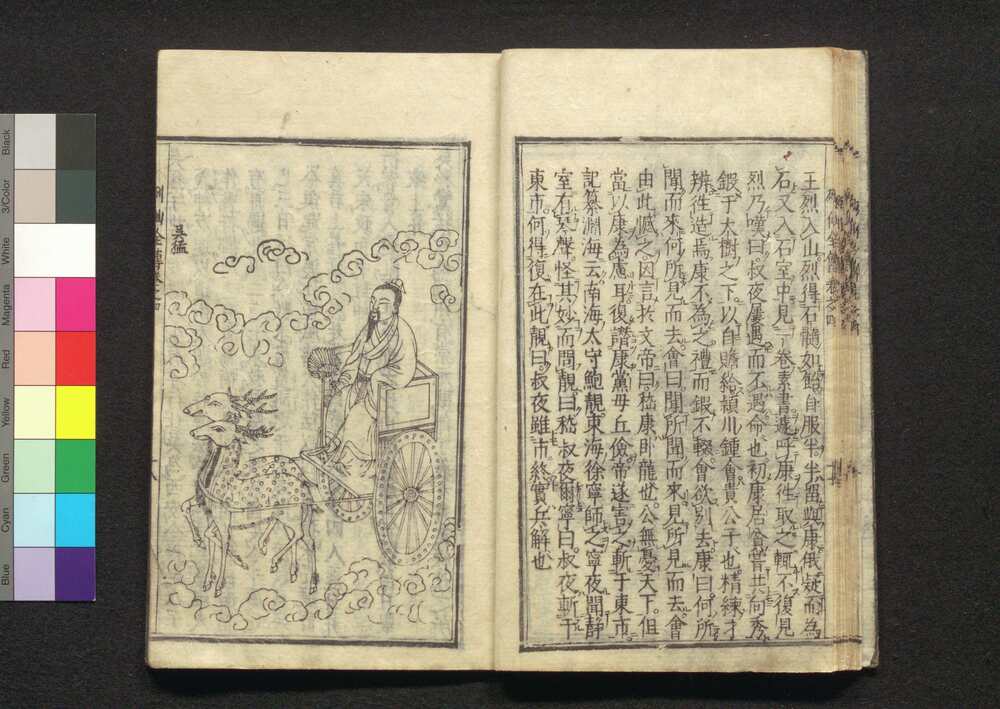 王烈入山烈得石髓如飴自服半半畱與康俄凝而為
石又入石室中見一卷素書遽呼康往取之輒不復見
烈乃嘆曰叔夜屢遇而不遇命也初康居貧嘗共向秀
鍜于大樹之下以自贍給頴川鍾會貴公子也精練才
辨徃造焉康不為之禮而鍜不輟會欲別去康曰何所
聞而來何所見而去會曰聞所聞而來見所見而去會
由此憾之因言於文帝曰嵇康臥龍也公無憂天下但
當以康為慮耳復譖康黨毋丘儉帝遂害之斬于東市
記纂淵海云南海太守鮑靚東海徐寧師之寧夜聞靜
室有琴聲怪其妙而問靚曰嵇叔夜爾寧曰叔夜斬于
東市何得復在此靚曰叔夜雖市終實兵解也
列仙全傳卷之四
Black
3/Color
White
Magenta
Red
Yellow
Green
Cyan
Blue